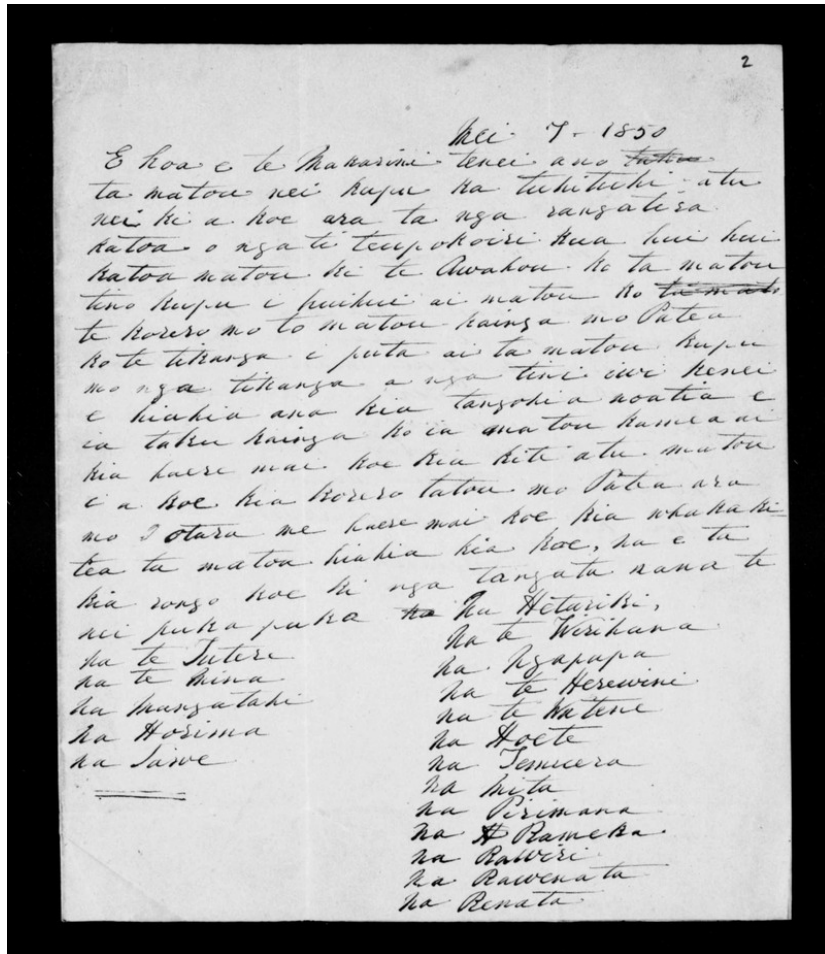 2
Mei 7 - 1850
E hoa e te Makarini tenei ano
ta matou nei kupu ka tuhituhi atu
nei ki a koe ara ta nga rangatira
katoa o ngati teupokoiri kua hui hui
katoa matou ki te Awahou ko ta matou
tino kupu i huihui ai matou ko
te korero mo to matou kainga mo Patea
ko te tikanga i puta ai ta matou kupu
mo nga tikanga a nga tini iwi kenei
e hiahia ana kia tangohia noatia e
ia taku kainga ko ia matou ka mea ai
kia haere mai koe kia kite atu matou
i a koe kia korero tatou mo Patea ara
mo Otara me haere mai koe kia whaka ki
tea ta matou hiahia kia koe, na e ta
kia rongo koe ki nga tangata nana te
nei puka puka na Na Hetariki,
na te Tuteri
na te Mina
na Mangatahi
na Horima
na Tawe
Na te Wirihana
na Ngapapa
na te Herewini
na te Watene
na Hoete
na Temuera
na Mita
na Pirimana
na Rameka
na Rawiri
na Rawenata
na Renata